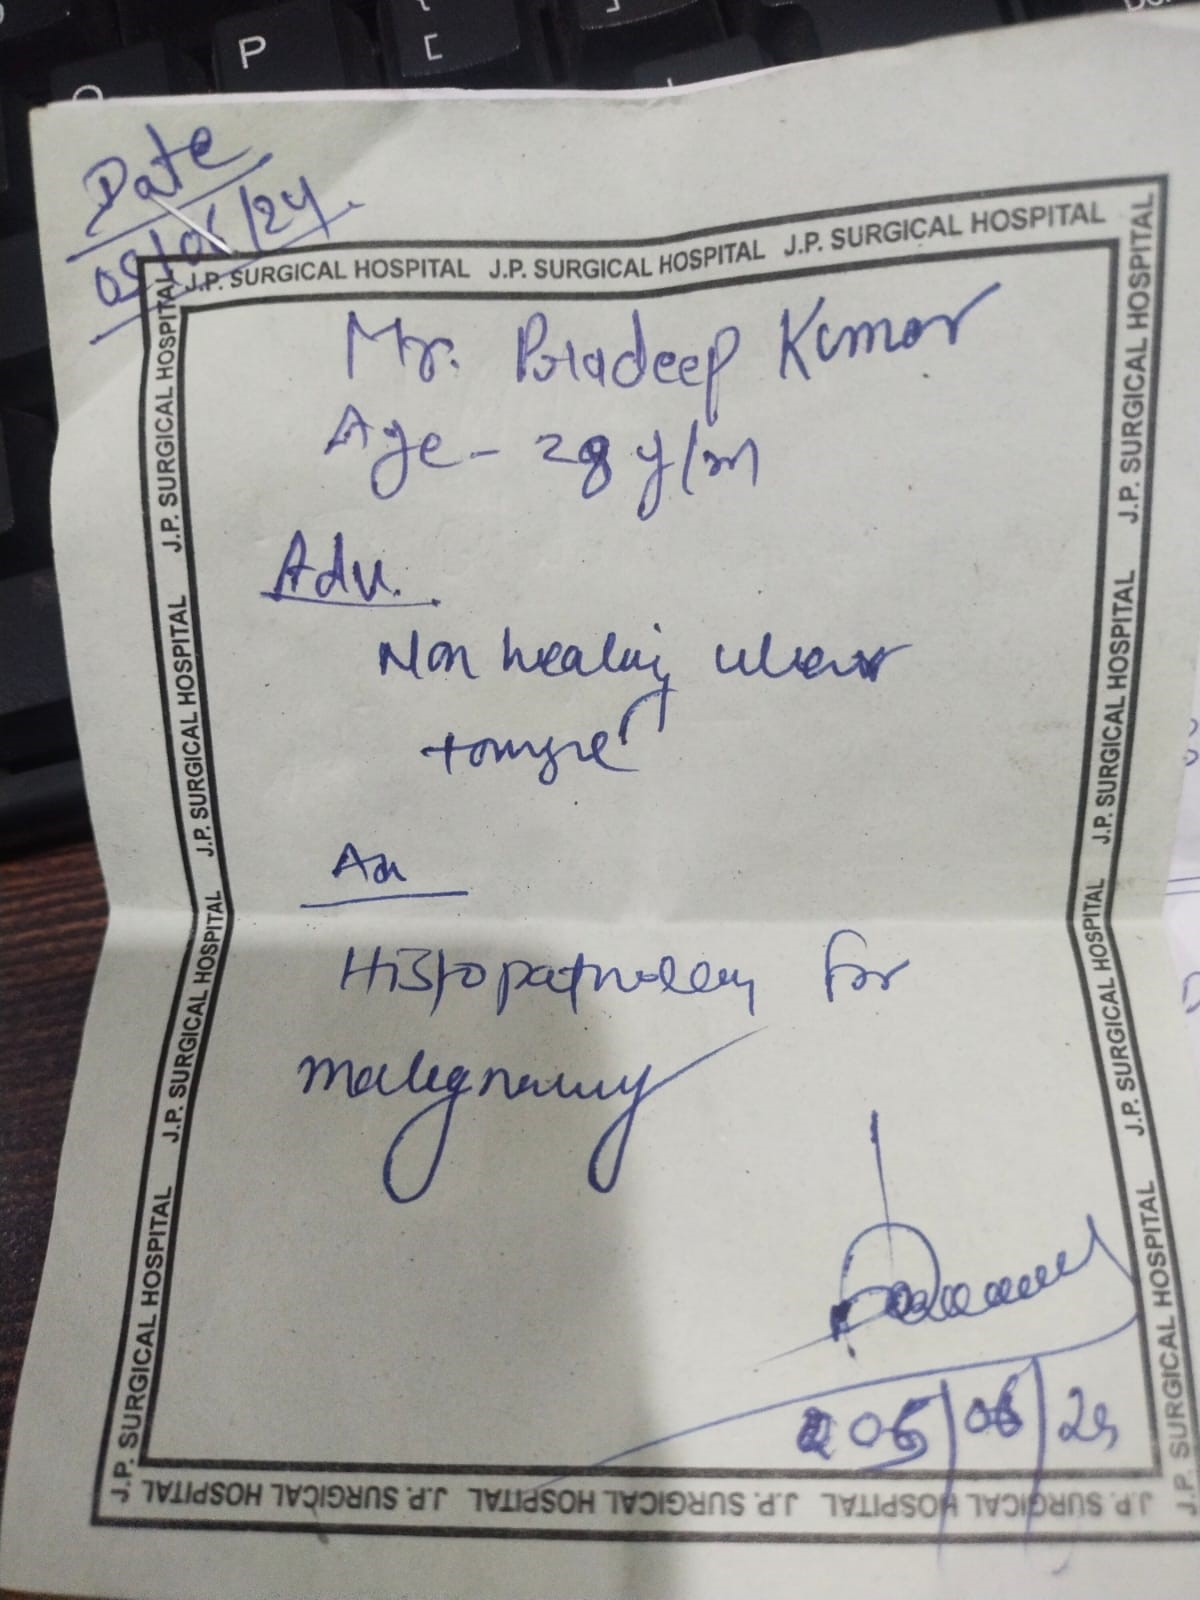 P
[
Date
05/06/24
J.P. SURGICAL HOSPITAL J.P. SURGICAL HOSPITAL J.P. SURGICAL HOSPITAL
Mr. Pradeep Kumar
Age - 28 y/m
Adv.
Non healing ulcer
tongue
Histopathology for
malignancy
05/06/24
J.P. SURGICAL HOSPITAL J.P. SURGICAL HOSPITAL J.P. SURGICAL HOSPITAL
J.P. SURGICAL HOSPITAL J.P. SURGICAL HOSPITAL J.P. SURGICAL HOSPITAL J.P. SURGICAL HOSPITAL
J.P. SURGICAL HOSPITAL J.P. SURGICAL HOSPITAL J.P. SURGICAL HOSPITAL J.P. SURGICAL HOSPITAL